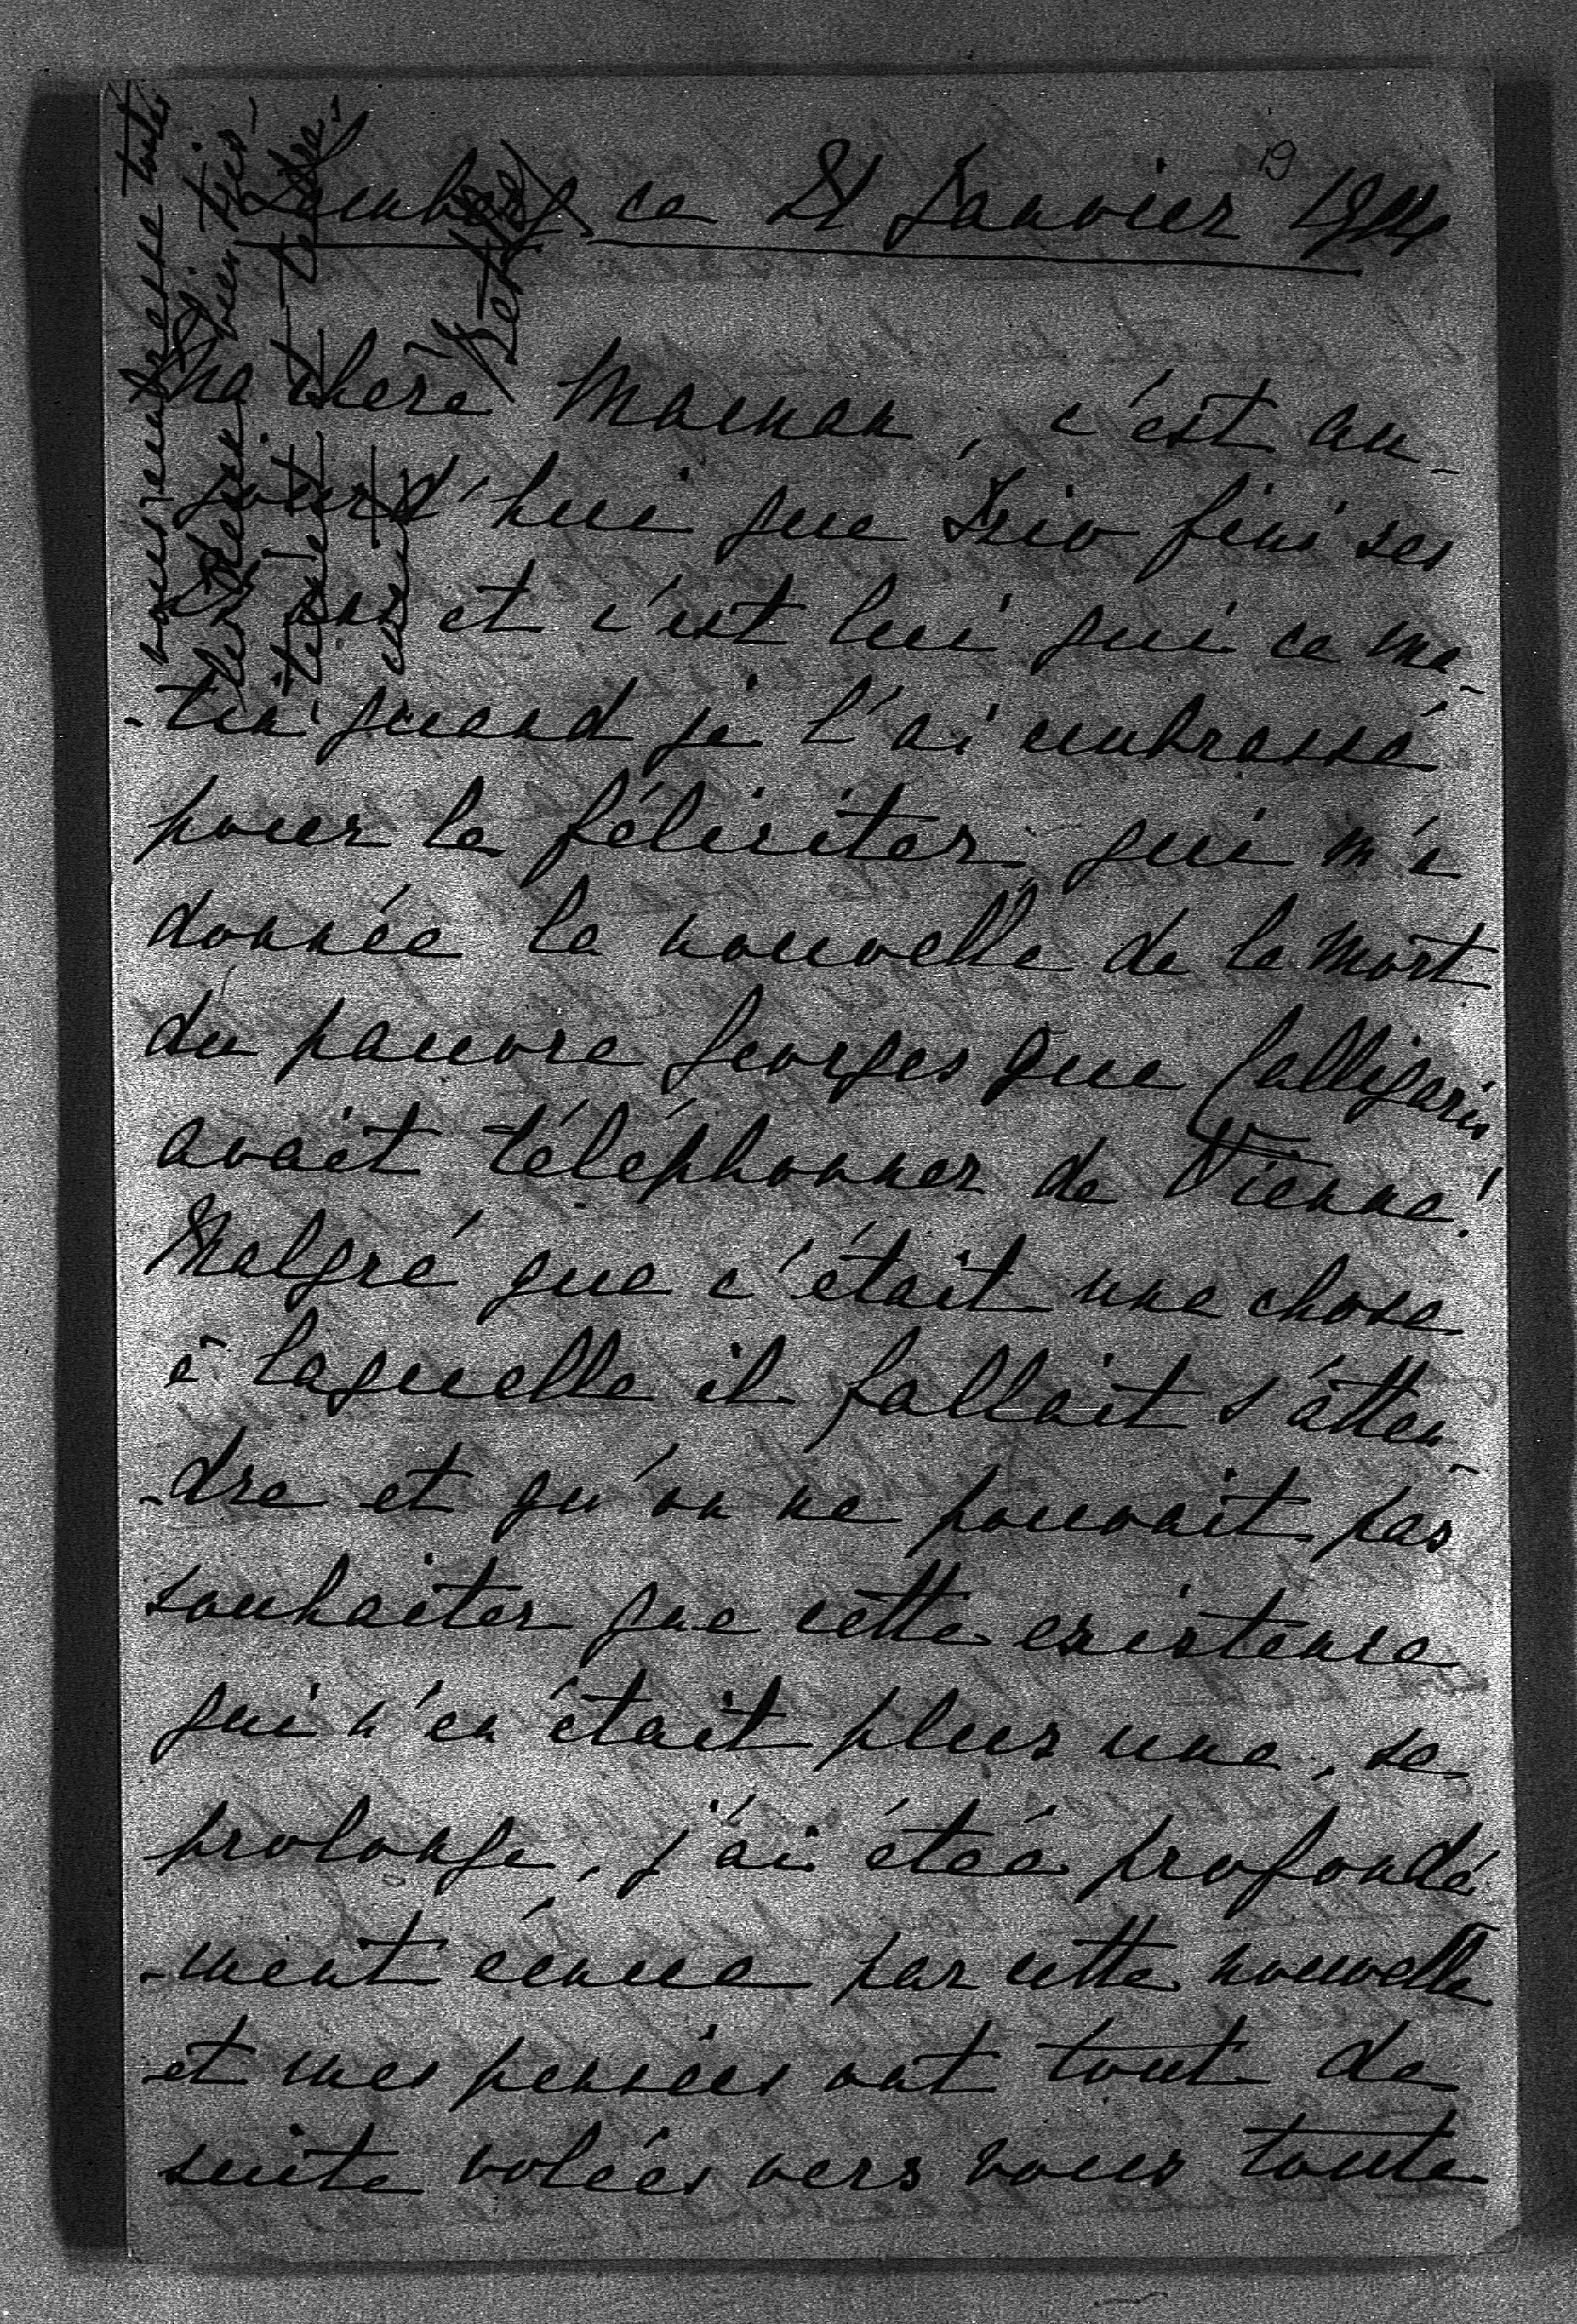 19
ce 21 Janvier 1914
Ma chère Maman, c'est au-
jourd'hui que Izio fini ses
ans et c'est lui qui ce ma-
-tin quand je l'ai embrassé
pour le féliciter qui m'a
donnée la nouvelle de la mort
du pauvre Georges que Calligaris
avait téléphonner de Vienne!
Malgré que c'était une chose
à laquelle il fallait s'atten-
-dre et qu'on ne pouvait pas
souhaiter que cette existence
qui n'en était plus une, se
prolonge, j'ai étée profondé-
-ment émue par cette nouvelle
et mes pensées ont tout de
suite volées vers vous toute
embrasse toutes
bien